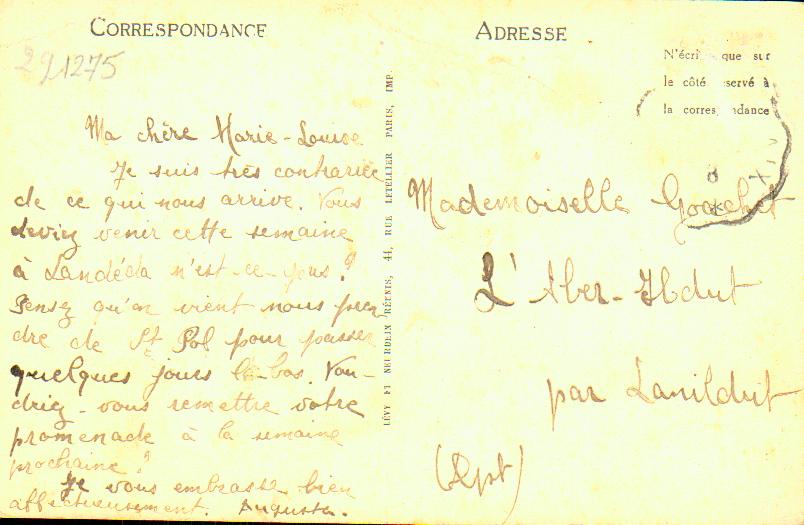 CORRESPONDANCE
291275
Ma chère Marie-Louise
Je suis très contrariée
de ce qui nous arrive. Vous
deviez venir cette semaine
à Landéda n'est-ce-pas?
Pensez qu'on vient nous pren
dre de St Pol pour passer
quelques jours là-bas. Vou-
driez-vous remettre votre
promenade à la semaine
prochaine?
Je vous embrasse bien
affectueusement. Augusta.
LÉVY ET NEURDEIN RÉUNIS, 44, RUE LETELLIER PARIS, IMP.
ADRESSE
N'écri que sur
le côté servé à
la corres ndance
Mademoiselle
L'Aber-Ildut
par Lanildut